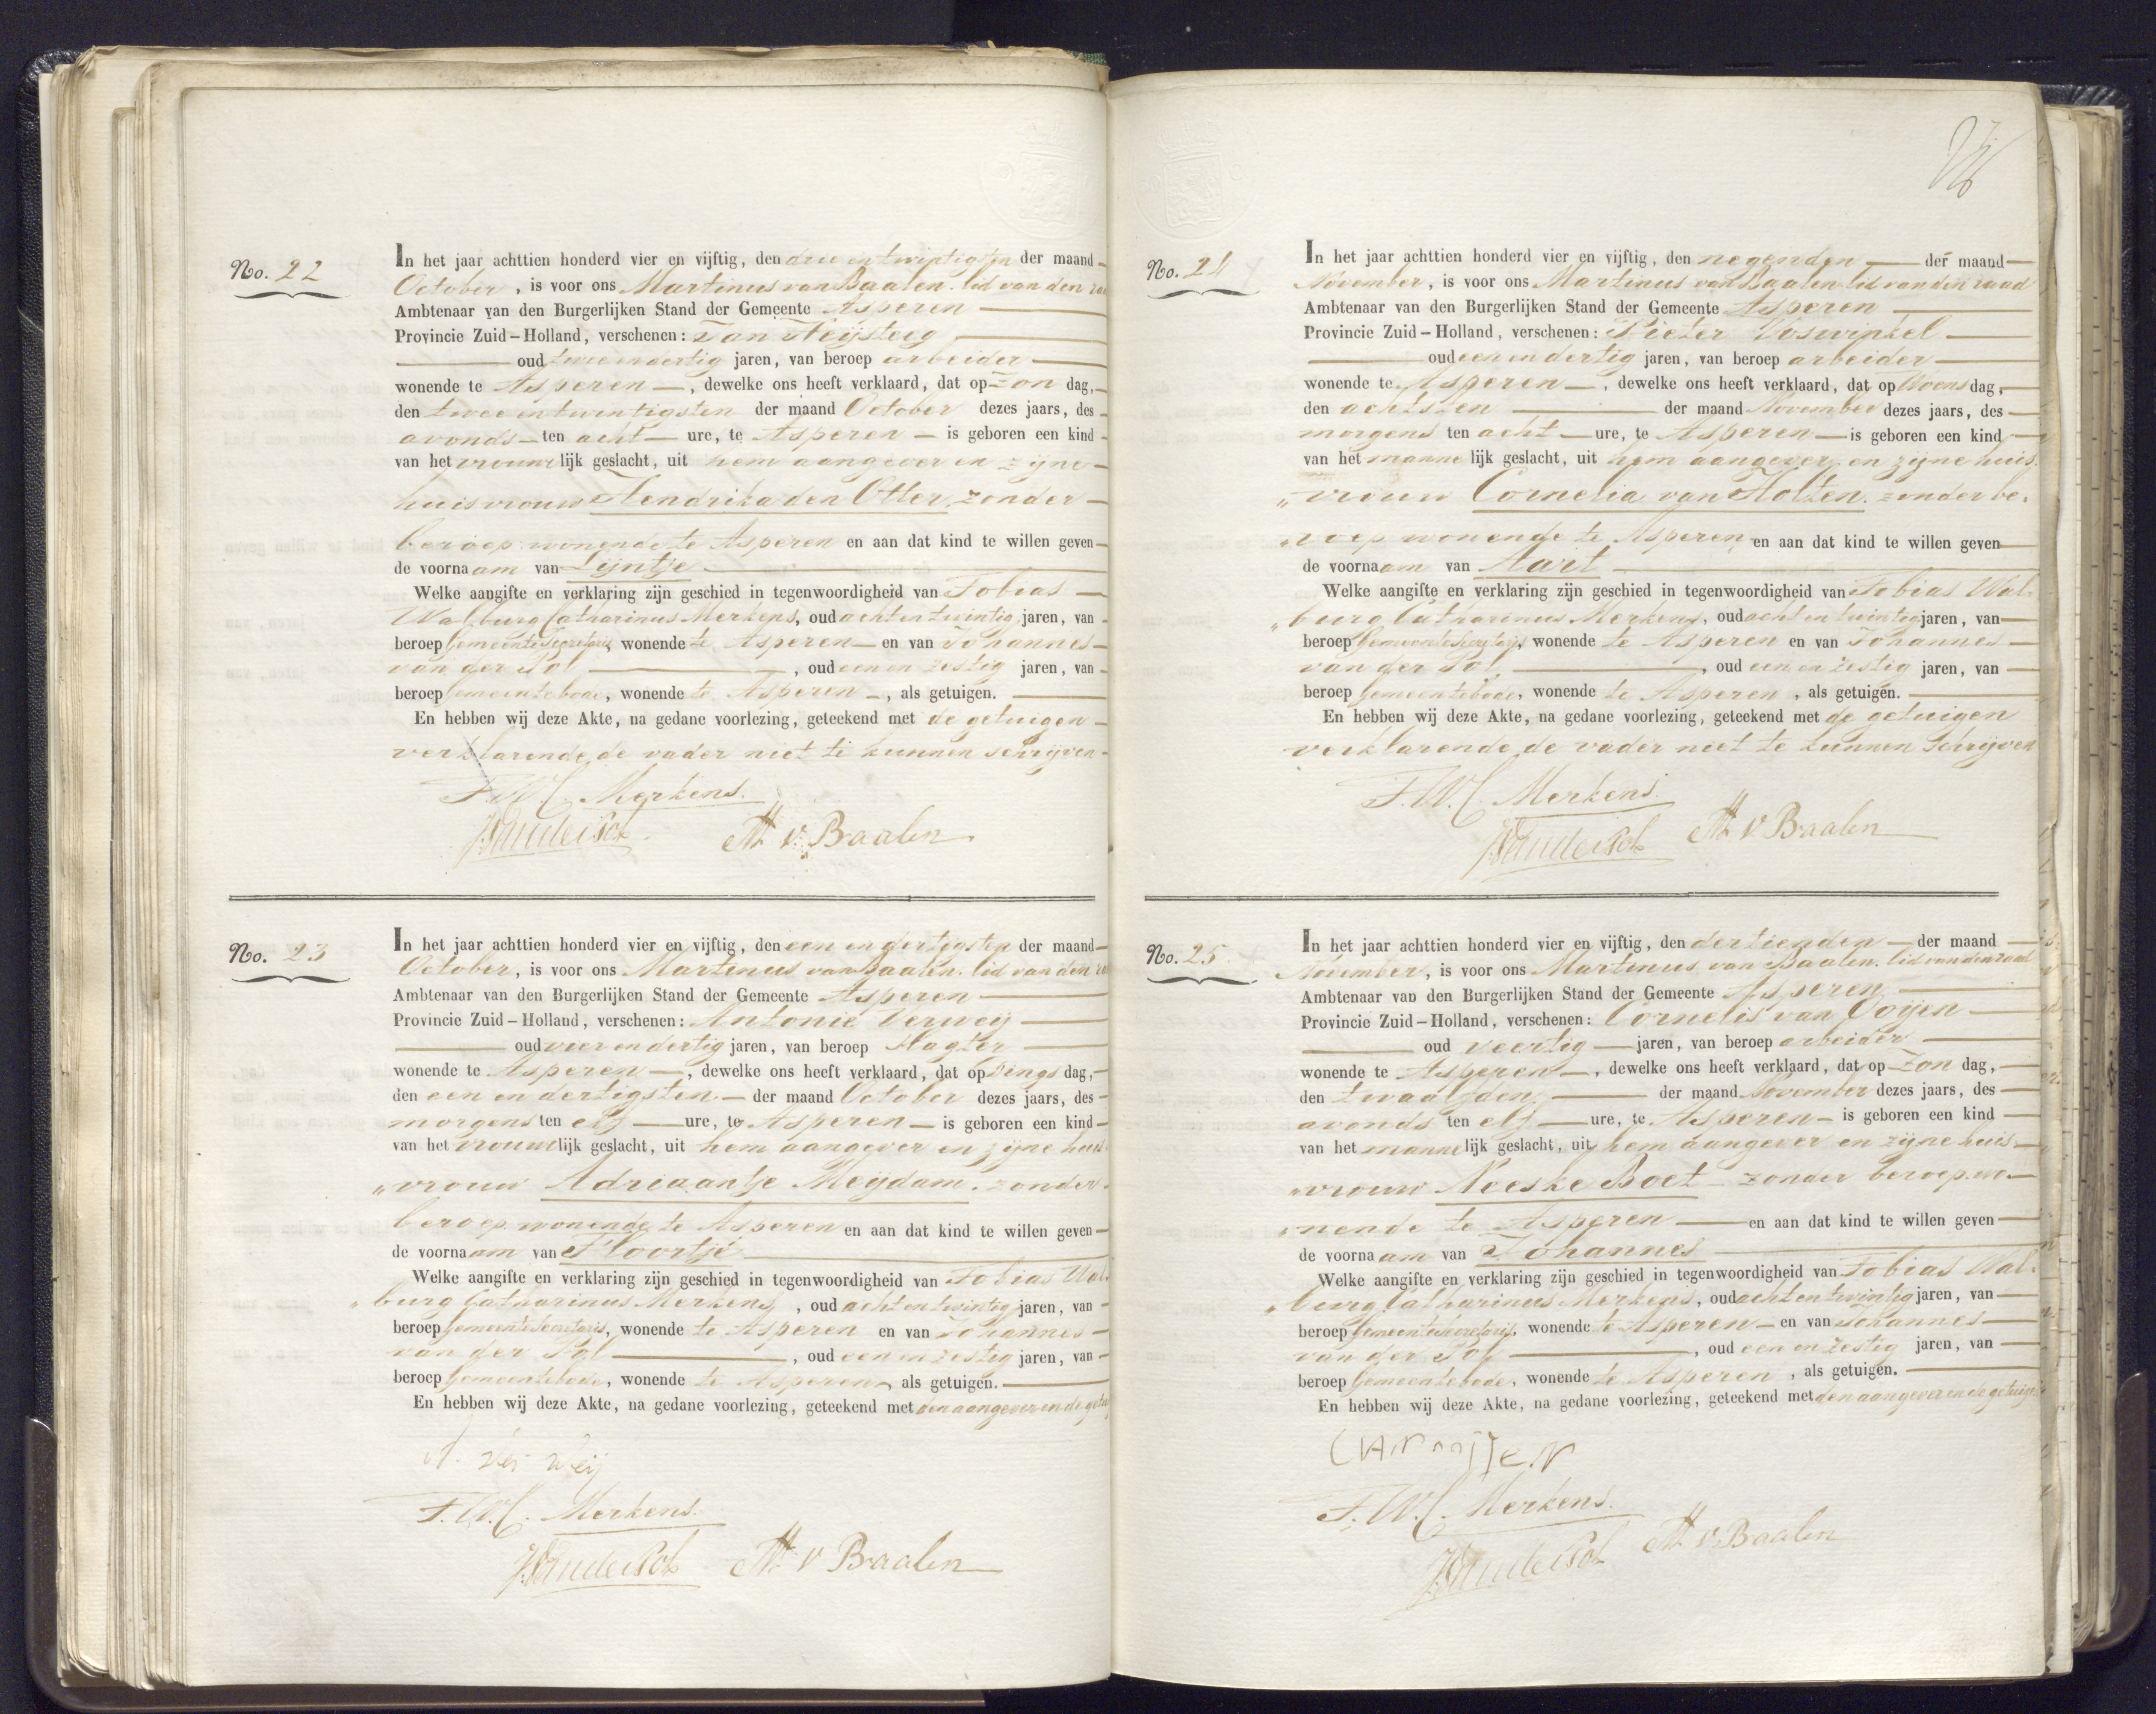 No. 22
In het jaar achttien honderd vier en vijftig, den drie en twintigsten der maand
October, is voor ons Martinus van Baalen. lid van den raa
Ambtenaar van den Burgerlijken Stand der Gemeente Asperen
Provincie Zuid-Holland, verschenen: Jan
oud twee en dertig jaren, van beroep arbeider
wonende te Asperen, dewelke ons heeft verklaard, dat op Zon dag,
den twee en twintigsten der maand October dezes jaars, des
avonds ten acht ure, te Asperen is geboren een kind
van het vrouwelijk geslacht, uit hem aangever en zijne
huisvrouw Hendrika den Otter, zonder
beroep wonende te Asperen en aan dat kind te willen geven
de voornaam van Lijntje
Welke aangifte en verklaring zijn geschied in tegenwoordigheid van Tobias
Walburg Catharinus Merkens, oud acht en twintig jaren, van
beroep Gemeente Secretaris, wonende te Asperen en van Johannes
van der Pol, oud een en zestig jaren, van
beroep Gemeentebode, wonende te Asperen, als getuigen.
En hebben wij deze Akte, na gedane voorlezing, geteekend met de getuigen
verklarende de vader niet te kunnen schrijven
T.W.C. Merkens.
J. van der Pol M v. Baalen
No. 23
In het jaar achttien honderd vier en vijftig, den een en dertigsten der maand
October, is voor ons Martinus van Baalen. lid van den ra
Ambtenaar van den Burgerlijken Stand der Gemeente Asperen
Provincie Zuid-Holland, verschenen: Antonie Verweij
oud vier en dertig jaren, van beroep slagter
wonende te Asperen, dewelke ons heeft verklaard, dat op Dings dag,
den een en dertigsten der maand October dezes jaars, des
morgens ten elf ure, te Asperen is geboren een kind
van het vrouwelijk geslacht, uit hem aangever en zijne huis
„vrouw Adriaantje Meijdam. zonder
beroep wonende te Asperen en aan dat kind te willen geven
de voornaam van Floortje
Welke aangifte en verklaring zijn geschied in tegenwoordigheid van Tobias Wal
„burg Catharinus Merkens, oud acht en twintig jaren, van
beroep Gemeente Secretaris, wonende te Asperen en van Johannes
van der Pol, oud een en zestig jaren, van
beroep Gemeentebode, wonende te Asperen, als getuigen.
En hebben wij deze Akte, na gedane voorlezing, geteekend met den aangever en de getui
A. ver weij
T.W.C. Merkens.
J. van der Pol M v Baalen
No. 24
In het jaar achttien honderd vier en vijftig, den negenden der maand
November, is voor ons Martinus van Baalen lid van den raad
Ambtenaar van den Burgerlijken Stand der Gemeente Asperen
Provincie Zuid-Holland, verschenen: Pieter Voswinkel
oud een en dertig jaren, van beroep arbeider
wonende te Asperen, dewelke ons heeft verklaard, dat op Woens dag,
den achtsten der maand November dezes jaars, des
morgens ten acht ure, te Asperen is geboren een kind
van het mannelijk geslacht, uit hem aangever en zijne huis
„vrouw Cornelia van Holten. zonder be.
„roep wonende te Asperen en aan dat kind te willen geven
de voornaam van Aart
Welke aangifte en verklaring zijn geschied in tegenwoordigheid van Tobias Wal
„burg Catharinus Merkens, oud acht en twintig jaren, van
beroep Gemeente Secretaris, wonende te Asperen en van Johannes
van der Pol, oud een en zestig jaren, van
beroep Gemeentebode, wonende te Asperen, als getuigen.
En hebben wij deze Akte, na gedane voorlezing, geteekend met de getuigen
verklarende de vader niet te kunnen Schrijven
T.W.C. Merkens.
J. van der Pol M v Baalen
No. 25
In het jaar achttien honderd vier en vijftig, den dertienden der maand
November, is voor ons Martinus van Baalen. lid van den raad
Ambtenaar van den Burgerlijken Stand der Gemeente Asperen
Provincie Zuid-Holland, verschenen: Cornelis van Ooijen
oud veertig jaren, van beroep arbeider
wonende te Asperen, dewelke ons heeft verklaard, dat op Zon dag,
den twaalfden der maand November dezes jaars, des
avonds ten elf ure, te Asperen is geboren een kind
van het mannelijk geslacht, uit hem aangever en zijne huis
„vrouw Neeske Boet zonder beroep. wo
„nende te Asperen en aan dat kind te willen geven
de voornaam van Johannes
Welke aangifte en verklaring zijn geschied in tegenwoordigheid van Tobias Wal
„burg Catharinus Merkens, oud acht en twintig jaren, van
beroep Gemeente Secretaris, wonende te Asperen en van Johannes
van der Pol, oud een en zestig jaren, van
beroep Gemeentebode, wonende te Asperen, als getuigen.
En hebben wij deze Akte, na gedane voorlezing, geteekend met den aangever en de getuig
T.W.C. Merkens.
J. van der Pol M v. Baalen